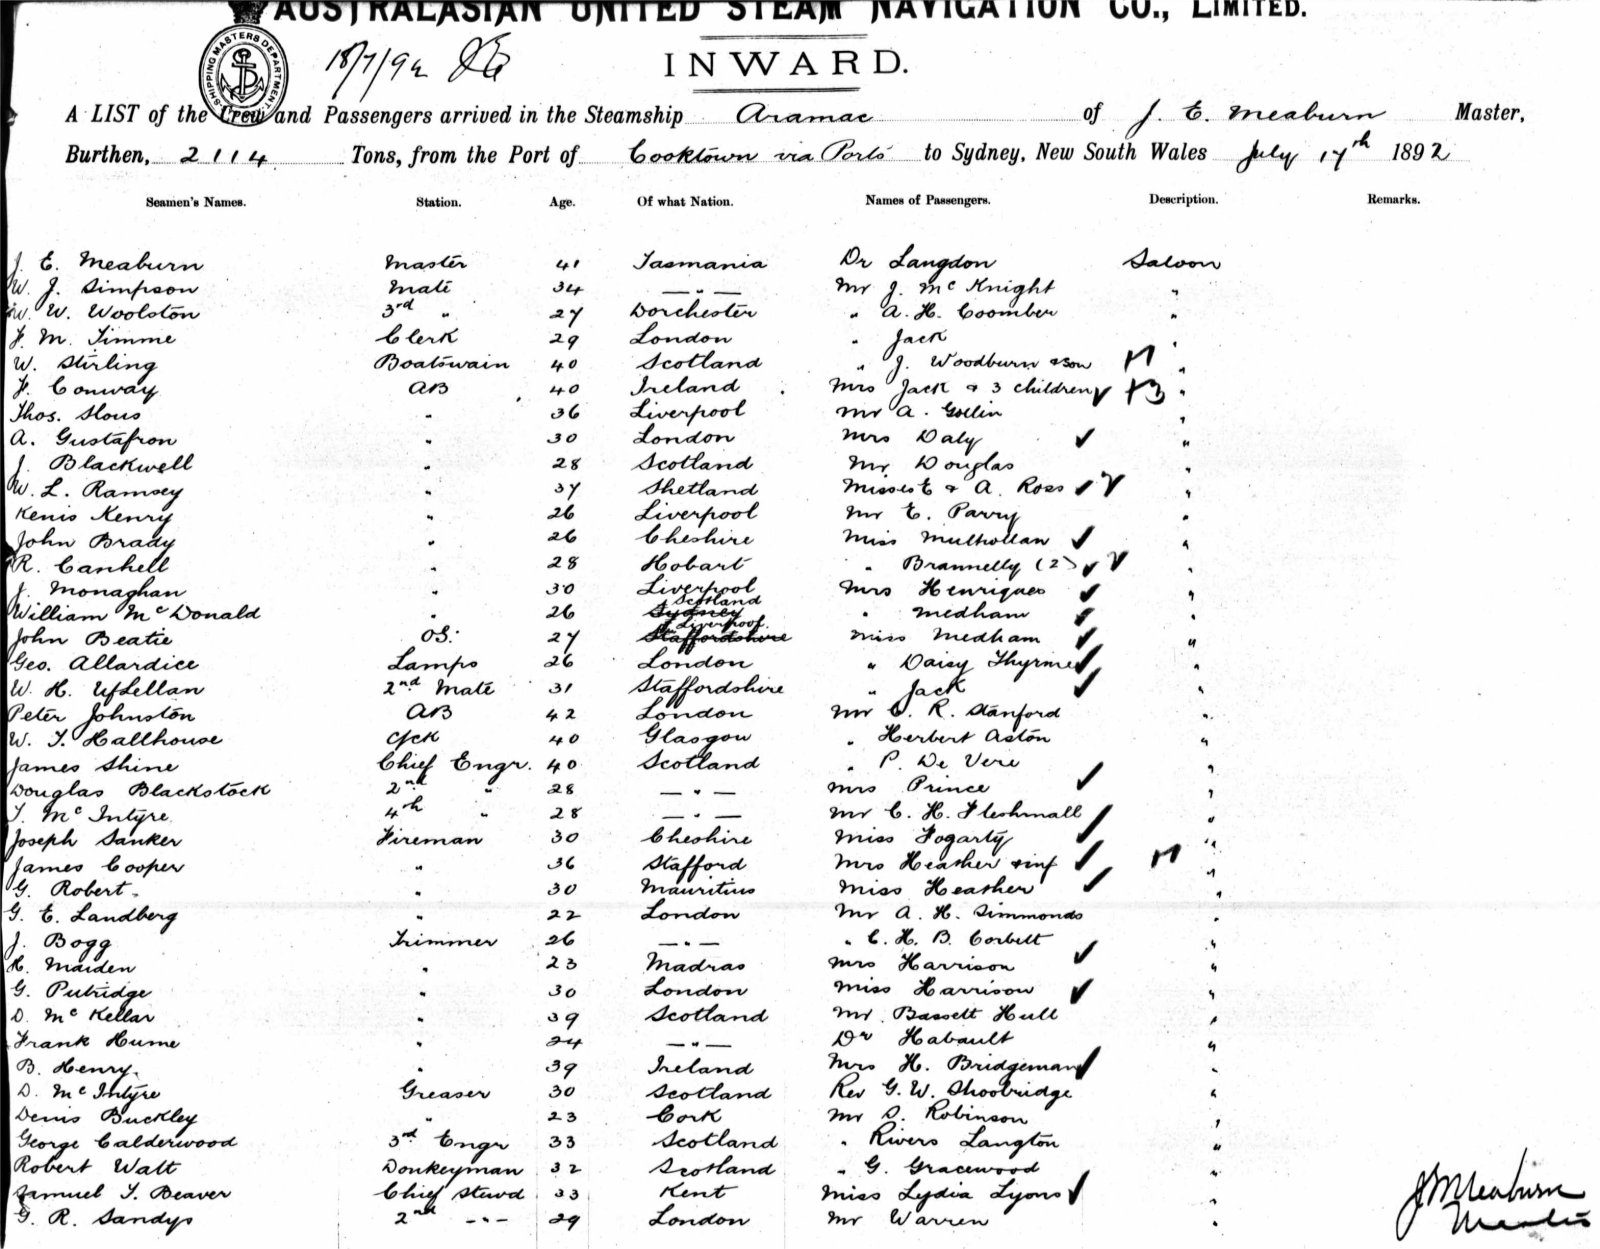 AUSTRALASIAN UNITED STEAM NAVIGATION CO., LIMITED.
SHIPPING MASTERS DEPARTMENT
18/7/92
INWARD.
A LIST of the Crew and Passengers arrived in the Steamship Aramac of J. E. Meaburn Master,
Burthen, 2114 Tons, from the Port of Cooktown via Ports to Sydney, New South Wales July 17th 1892
Seamen's Names. Station. Age. Of what Nation. Names of Passengers. Description. Remarks.
J. E. Meaburn Master 41 Tasmania Dr Langdon Saloon
W. J. Simpson Mate 34 — " — Mr J. McKnight "
W. W. Woolston 3rd " 27 Dorchester " A. H. Coomber "
F. M. Timme Clerk 29 London " Jack "
W. Stirling Boatswain 40 Scotland " J. Woodburn & Son "
F. Conway AB 40 Ireland Mrs Jack & 3 children "
Thos. Slous " 36 Liverpool Mr A. Gollin "
A. Gustafron " 30 London Mrs Daly "
J. Blackwell " 28 Scotland Mr Douglas "
W. L. Ramsey " 37 Shetland Misses E & A. Ross "
Kenis Henry " 26 Liverpool Mr E. Parry "
John Brady " 26 Cheshire Miss Mulhollan "
R. Canhell " 28 Hobart " Brannelly (2) "
J. Monaghan " 30 Liverpool Mrs Henriques "
William McDonald " 26 Sydney Scotland " Medham "
John Beatie OS. 27 Staffordshire Liverpool Miss Medham "
Geo. Allardice Lamps 26 London " Daisy Thyrme "
W. H. 2nd Mate 31 Staffordshire " Jack "
Peter Johnston AB 42 London Mr C. R. Stanford "
W. T. Hallhouse 40 Glasgow " Herbert Aston "
James Shine Chief Engr. 40 Scotland " P. De Vere "
Douglas Blackstock 2nd " 28 — " — Mrs Prince "
T. McIntyre 4th " 28 — " — Mr C. H. Fleshmall "
Joseph Sanker Fireman 30 Cheshire Miss Fogarty "
James Cooper " 36 Stafford Mrs Heather & inf "
G. Robert " 30 Mauritius Miss Heather "
G. E. Landberg " 22 London Mr A. H. Simmonds "
J. Bogg Trimmer 26 — " — " C. H. B. Corbett "
H. Maiden " 23 Madras Mrs Harrison "
G. Putridge " 30 London Miss Harrison "
D. McKellar " 39 Scotland Mr Bassett Hull "
Frank Hume " 24 — " — Dr Habault "
B. Henry " 39 Ireland Mrs H. Bridgeman "
D. McIntyre Greaser 30 Scotland Rev G. W. Shoobridge "
Denis Buckley " 23 Cork Mr S. Robinson "
George Calderwood 3rd Engr 33 Scotland " Rivers Langton "
Robert Watt Donkeyman 32 Scotland " G. Gracewood "
Samuel T. Beaver Chief Stewd 33 Kent Miss Lydia Lyons "
G. R. Sandys 2nd - " - 29 London Mr Warren "
J E Meaburn
Master